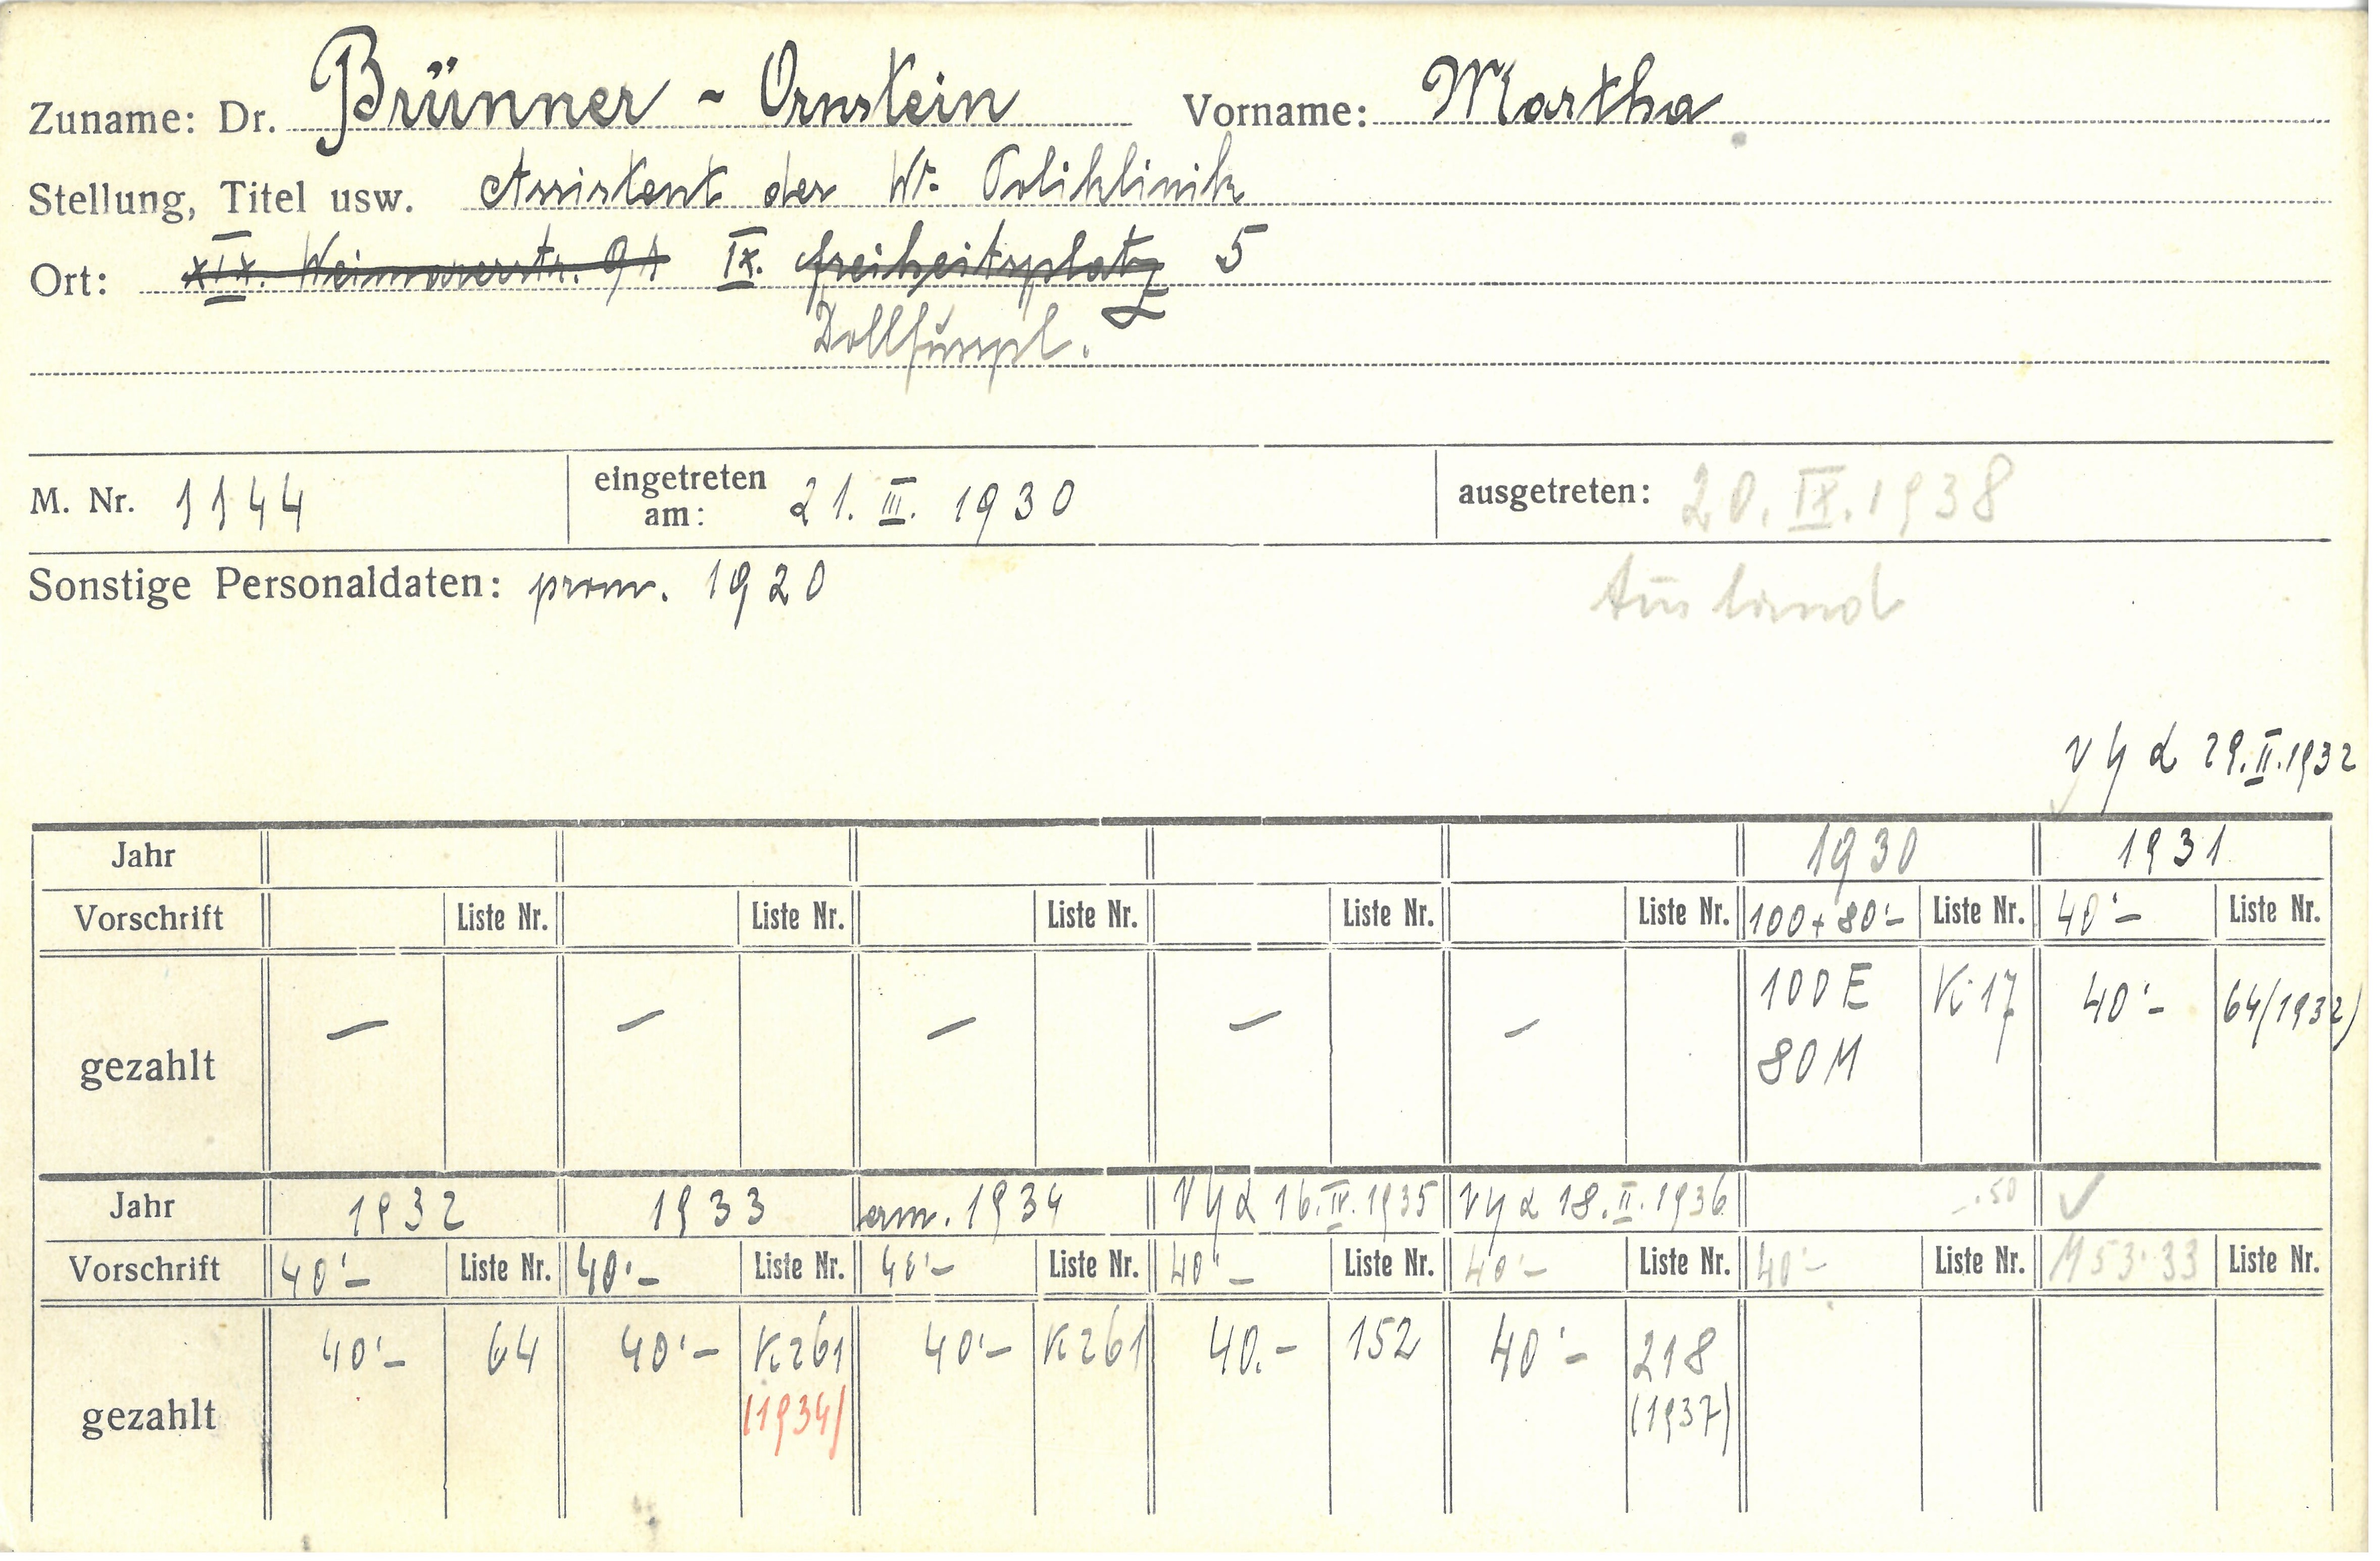 Zuname: Dr. Brünner - Ornstein Vorname: Martha
Stellung, Titel usw. Assistent der W. Poliklinik
Ort: XIX. Weimarerstr. 91 IX. Freiheitsplatz 5
Dollfusspl.
M. Nr. 1144 eingetreten am: 21. III. 1930 ausgetreten: 20. IX. 1938
Sonstige Personaldaten: prom. 1920 Ausland
29.II.1932
Jahr 1930 1931
Vorschrift Liste Nr. Liste Nr. Liste Nr. Liste Nr. Liste Nr. 100+80'- Liste Nr. 40'- Liste Nr.
gezahlt — — — — — 100 E K 17 40'- 64(1932)
80 M
Jahr 1932 1933 1934 16.IV.1935 18.II.1936 -.50 ✓
Vorschrift 40'- Liste Nr. 40'- Liste Nr. 40'- Liste Nr. 40'- Liste Nr. 40'- Liste Nr. 40'- Liste Nr. M 53.33 Liste Nr.
gezahlt 40'- 64 40'- K 261 40'- K 261 40.- 152 40'- 218
(1934) (1937)